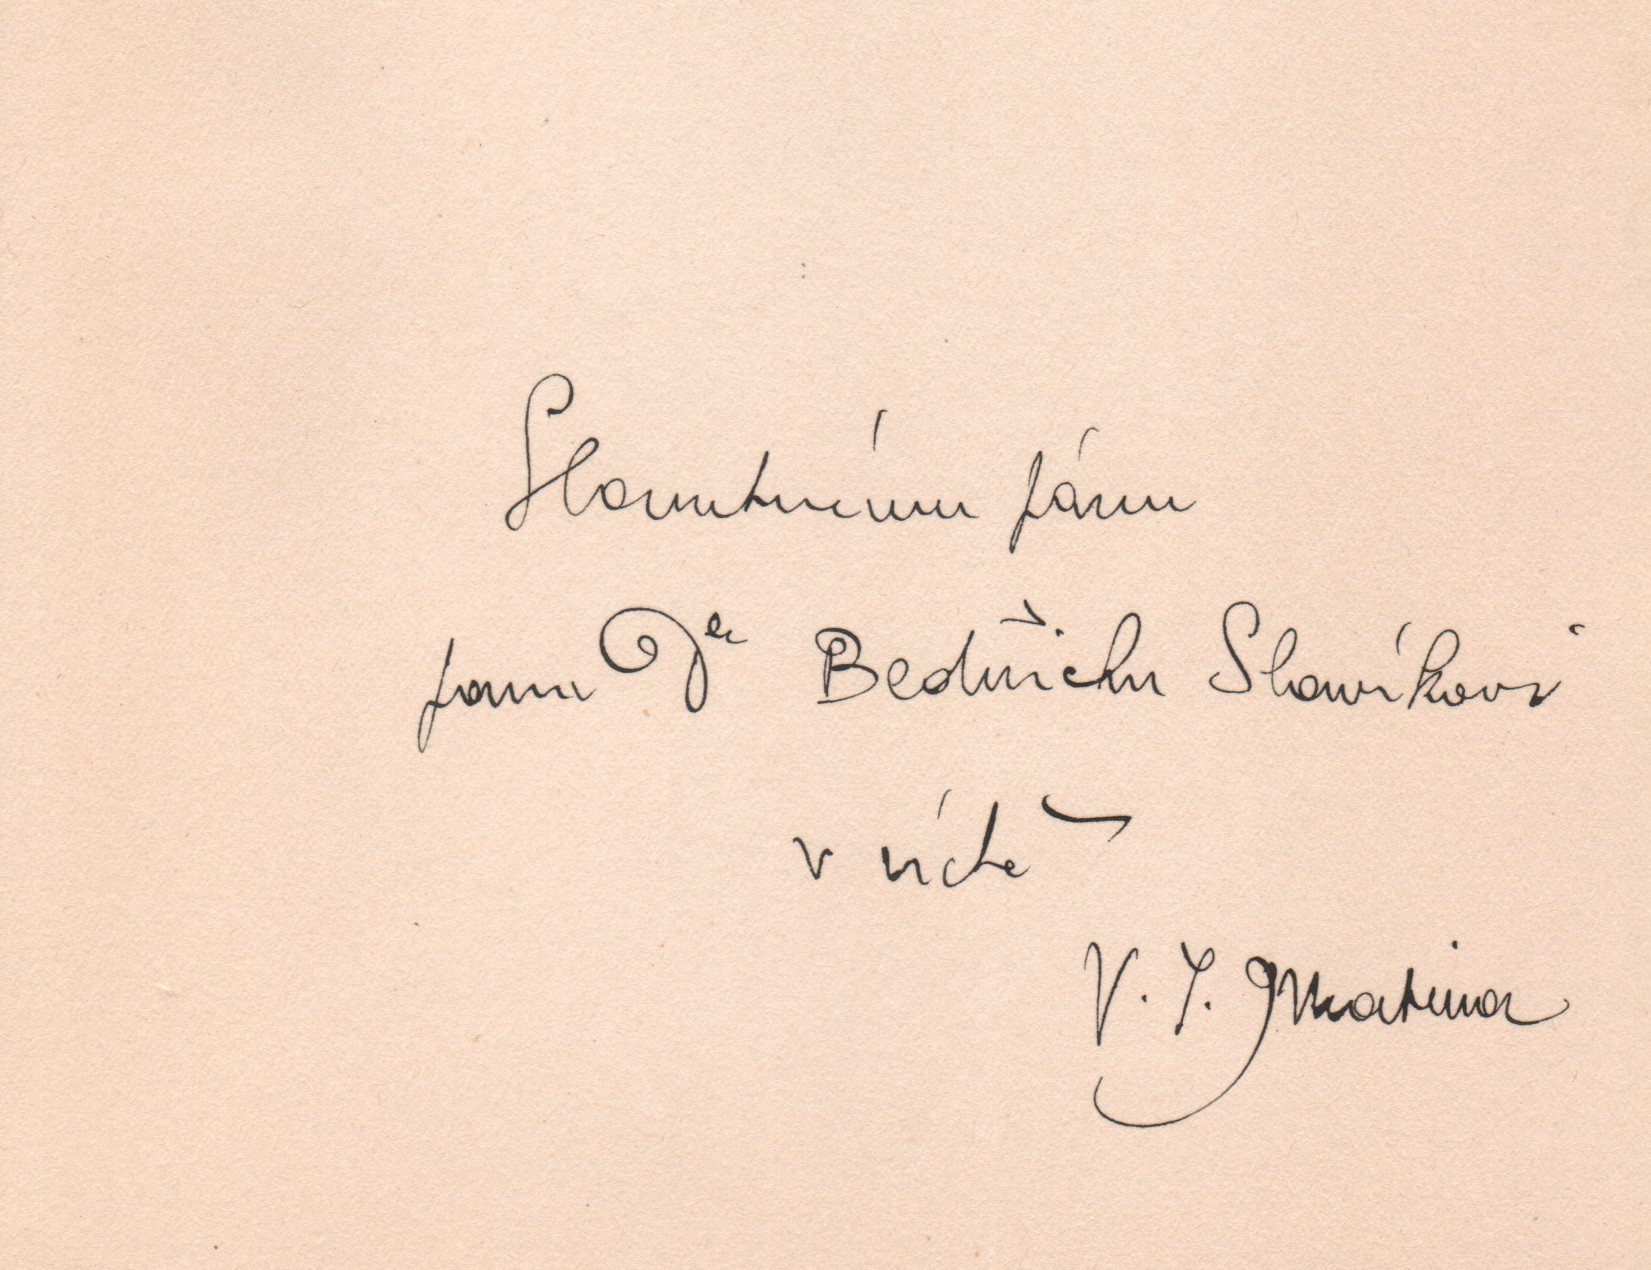 Slovutnému pánu
panu Dr Bedřichu Slavíkovi
v úctě
V. J.